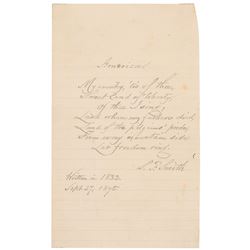 America.
My country, 'tis of thee,
Sweet land of liberty,
Of thee I sing;
Land where my fathers died,
Land of the pilgrims' pride,
From every mountain side
Let freedom ring.
S. F. Smith
Written in 1832.
Sept. 27, 1895